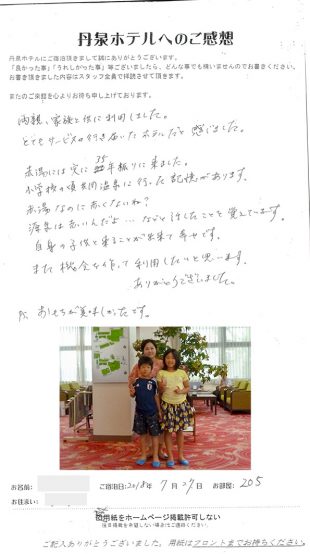 丹泉ホテルへのご感想
丹泉ホテルにご宿泊頂きまして誠にありがとうございます。
「良かった事」「うれしかった事」等ございましたら、どんな事でも構いませんのでお書きください。
お書き頂きました内容はスタッフ全員で拝読させて頂きます。
またのご来館を心よりお待ち申し上げております。
両親、家族と共に利用しました。
とてもサービスの行き届いたホテルだと感じました。
赤湯には実に35年振りに来ました。
小学校の頃共同温泉に行った記憶があります。
赤湯なのに赤くないね?
源泉は赤いんだよ…などと話したことを覚えています。
自身の子供と来ることが出来て幸せです。
また機会を作って利用したいと思います。
ありがとうございました。
P.S. おもちが美味しかったです。
お名前:
ご宿泊日:2018年7月27日
お部屋:205
お住まい:
用紙をホームページ掲載許可しない
ご記入ありがとうございました。用紙はフロントまでお持ちください。